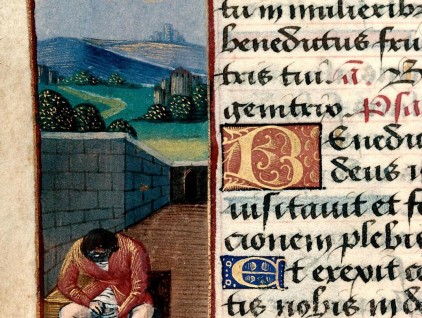 tu in mulierib
benedictus fru
tris tui. a. B
genitrix. Psa
Benedic
deus i
uisitauit et fe
cionem plebis
Et erexit co
tis nobis in d